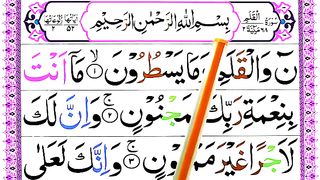 بِسْمِ اللهِ الرَّحْمٰنِ الرَّحِيْمِ
نٓ وَالْقَلَمِ وَمَا يَسْطُرُوْنَ ۝١ مَآ اَنْتَ
بِنِعْمَةِ رَبِّكَ بِمَجْنُوْنٍ ۝٢ وَاِنَّ لَكَ
لَاَجْرًا غَيْرَ مَمْنُوْنٍ ۝٣ وَاِنَّكَ لَعَلٰى